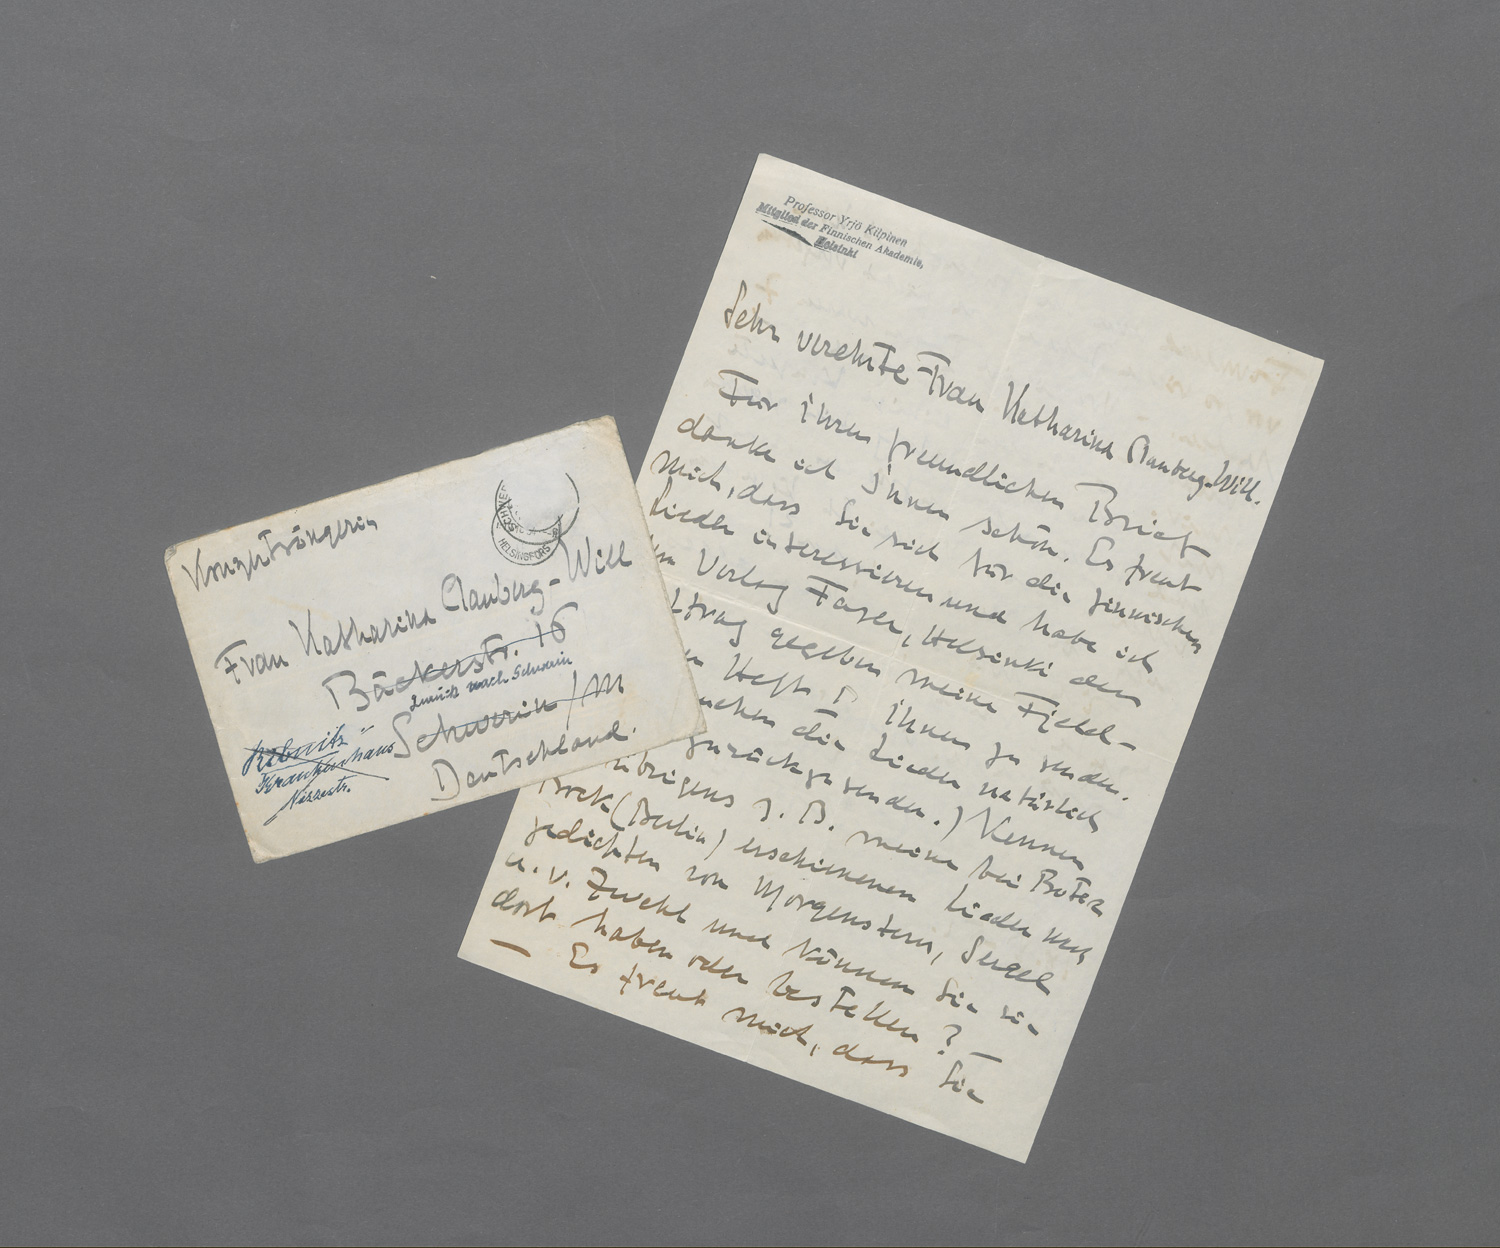 Professor Yrjö Kilpinen
Mitglied der Finnischen Akademie,
Helsinki
Sehr verehrte Frau Katharina Clauberg-Will.
Für ihren freundlichen Brief
danke ich Ihnen schön. Es freut
mich, dass Sie sich für die finnischen
Lieder interessieren und habe ich
Verlag Fazer, Helsinki den
ftrag gegeben meine Fjeld-
Heft I Ihnen zu senden.
die Lieder natürlich
zurückzusenden.) Kennen
übrigens z. B. meine bei Bote &
Bock (Berlin) erschienenen Lieder nach
gedichten von Morgenstern, Sergel
u. v. Zwehl und können Sie sie
dort haben oder bestellen?
— Es freut mich, dass Sie
Konzertsängerin
Frau Katharina Clauberg-Will
Bäckerstr. 16
zurück nach Schwerin
Schwerin / M
Deutschland.
Krankenhaus
HELSINGFORS